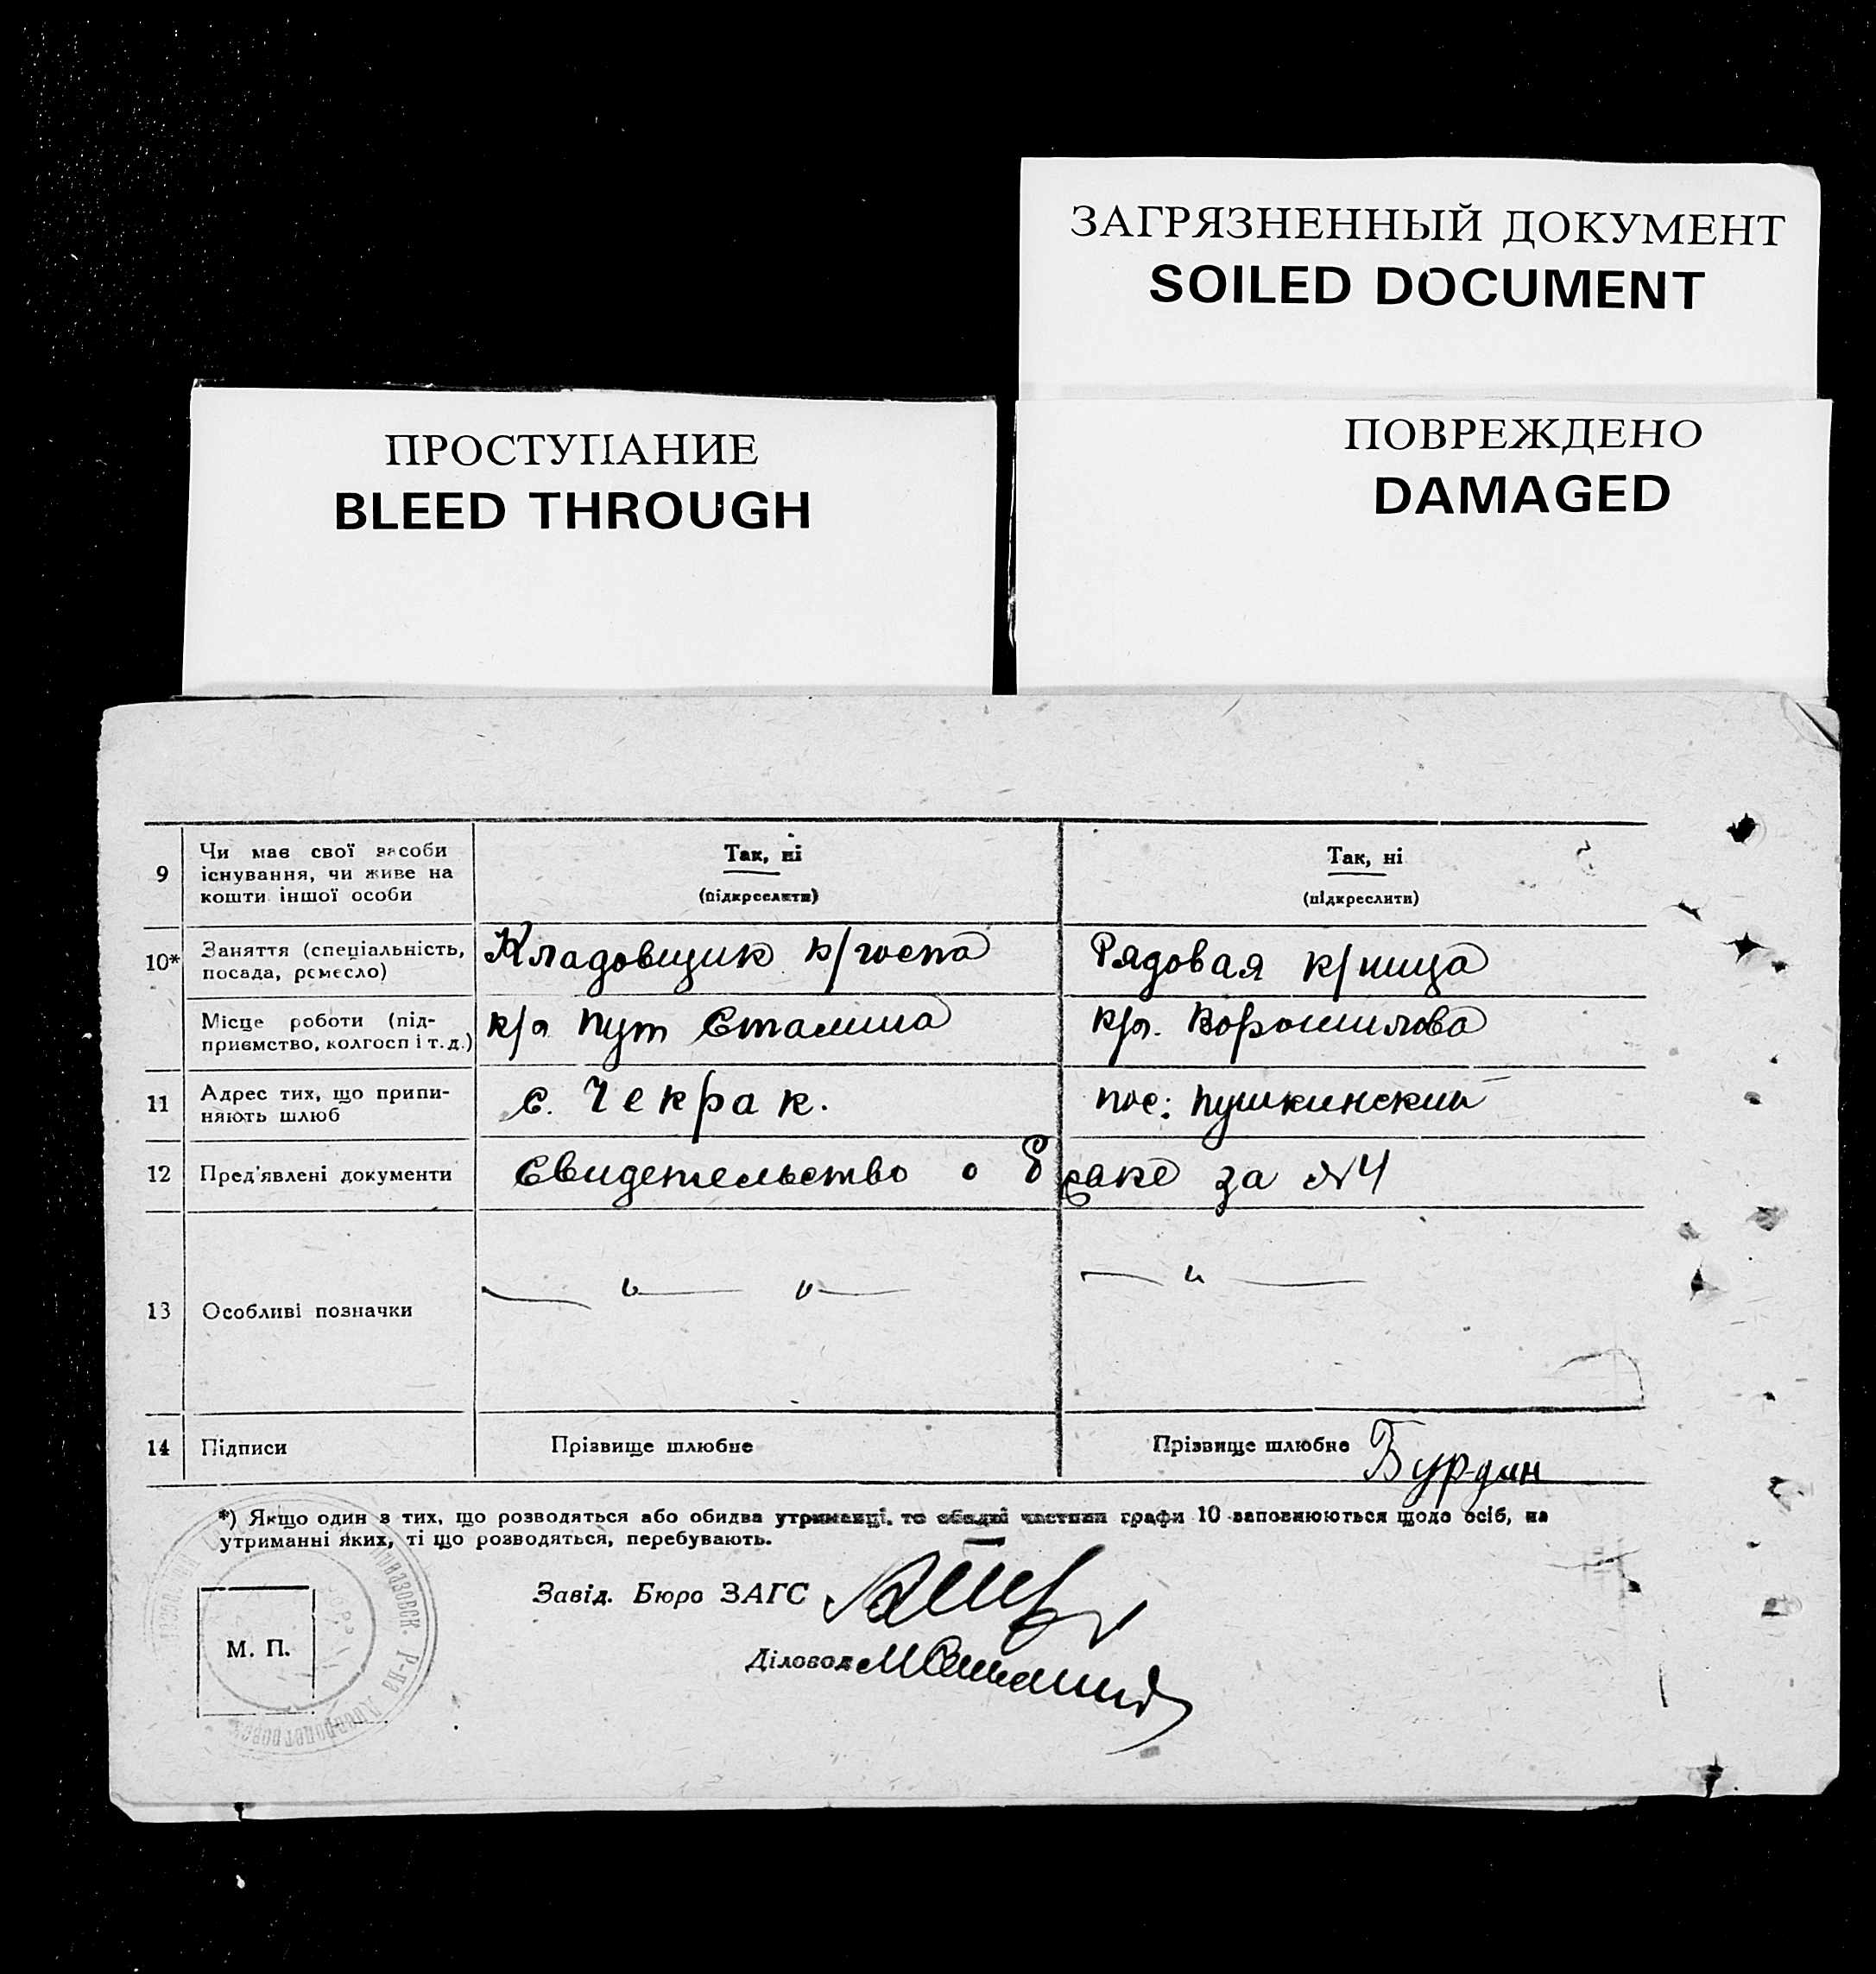 ЗАГРЯЗНЕННЫЙ ДОКУМЕНТ
SOILED DOCUMENT
ПРОСТУПАНИЕ
BLEED THROUGH
ПОВРЕЖДЕНО
DAMAGED
9
Чи має свої засоби
існування, чи живе на
кошти іншої особи
Так, ні
(підкреслити)
Так, ні
(підкреслити)
10*
Заняття (спеціальність,
посада, ремесло)
Кладовщик к/госпа
Рядовая к/ница
Місце роботи (під-
приємство, колгосп і т. д.)
к/л Пут Сталина
к/л. Ворошилова
11
Адрес тих, що припи-
няють шлюб
с. Чекрак.
пос: Пушкинский
12
Пред'явлені документи
Свидетельство о браке за №4
13
Особливі позначки
— " — " —
— " —
14
Підписи
Прізвище шлюбне
Прізвище шлюбне Бурдин
*) Якщо один з тих, що розводяться або обидва утриманці, то обидві частини графи 10 заповнюються щодо осіб, на
утриманні яких, ті що розводяться, перебувають.
Завід. Бюро ЗАГС
М. П.
Діловод